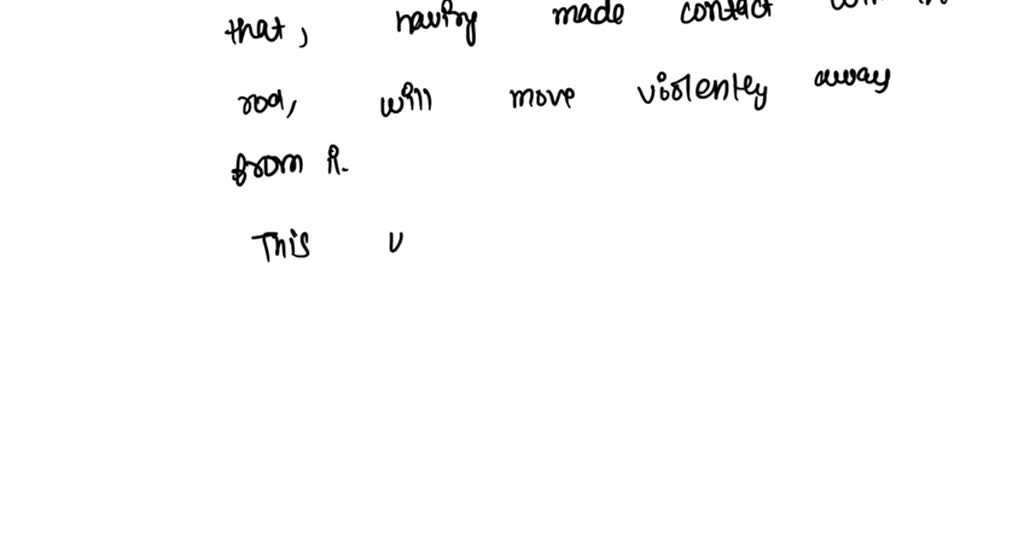 that, having made contact with
rod, will move violently away
from R.
This